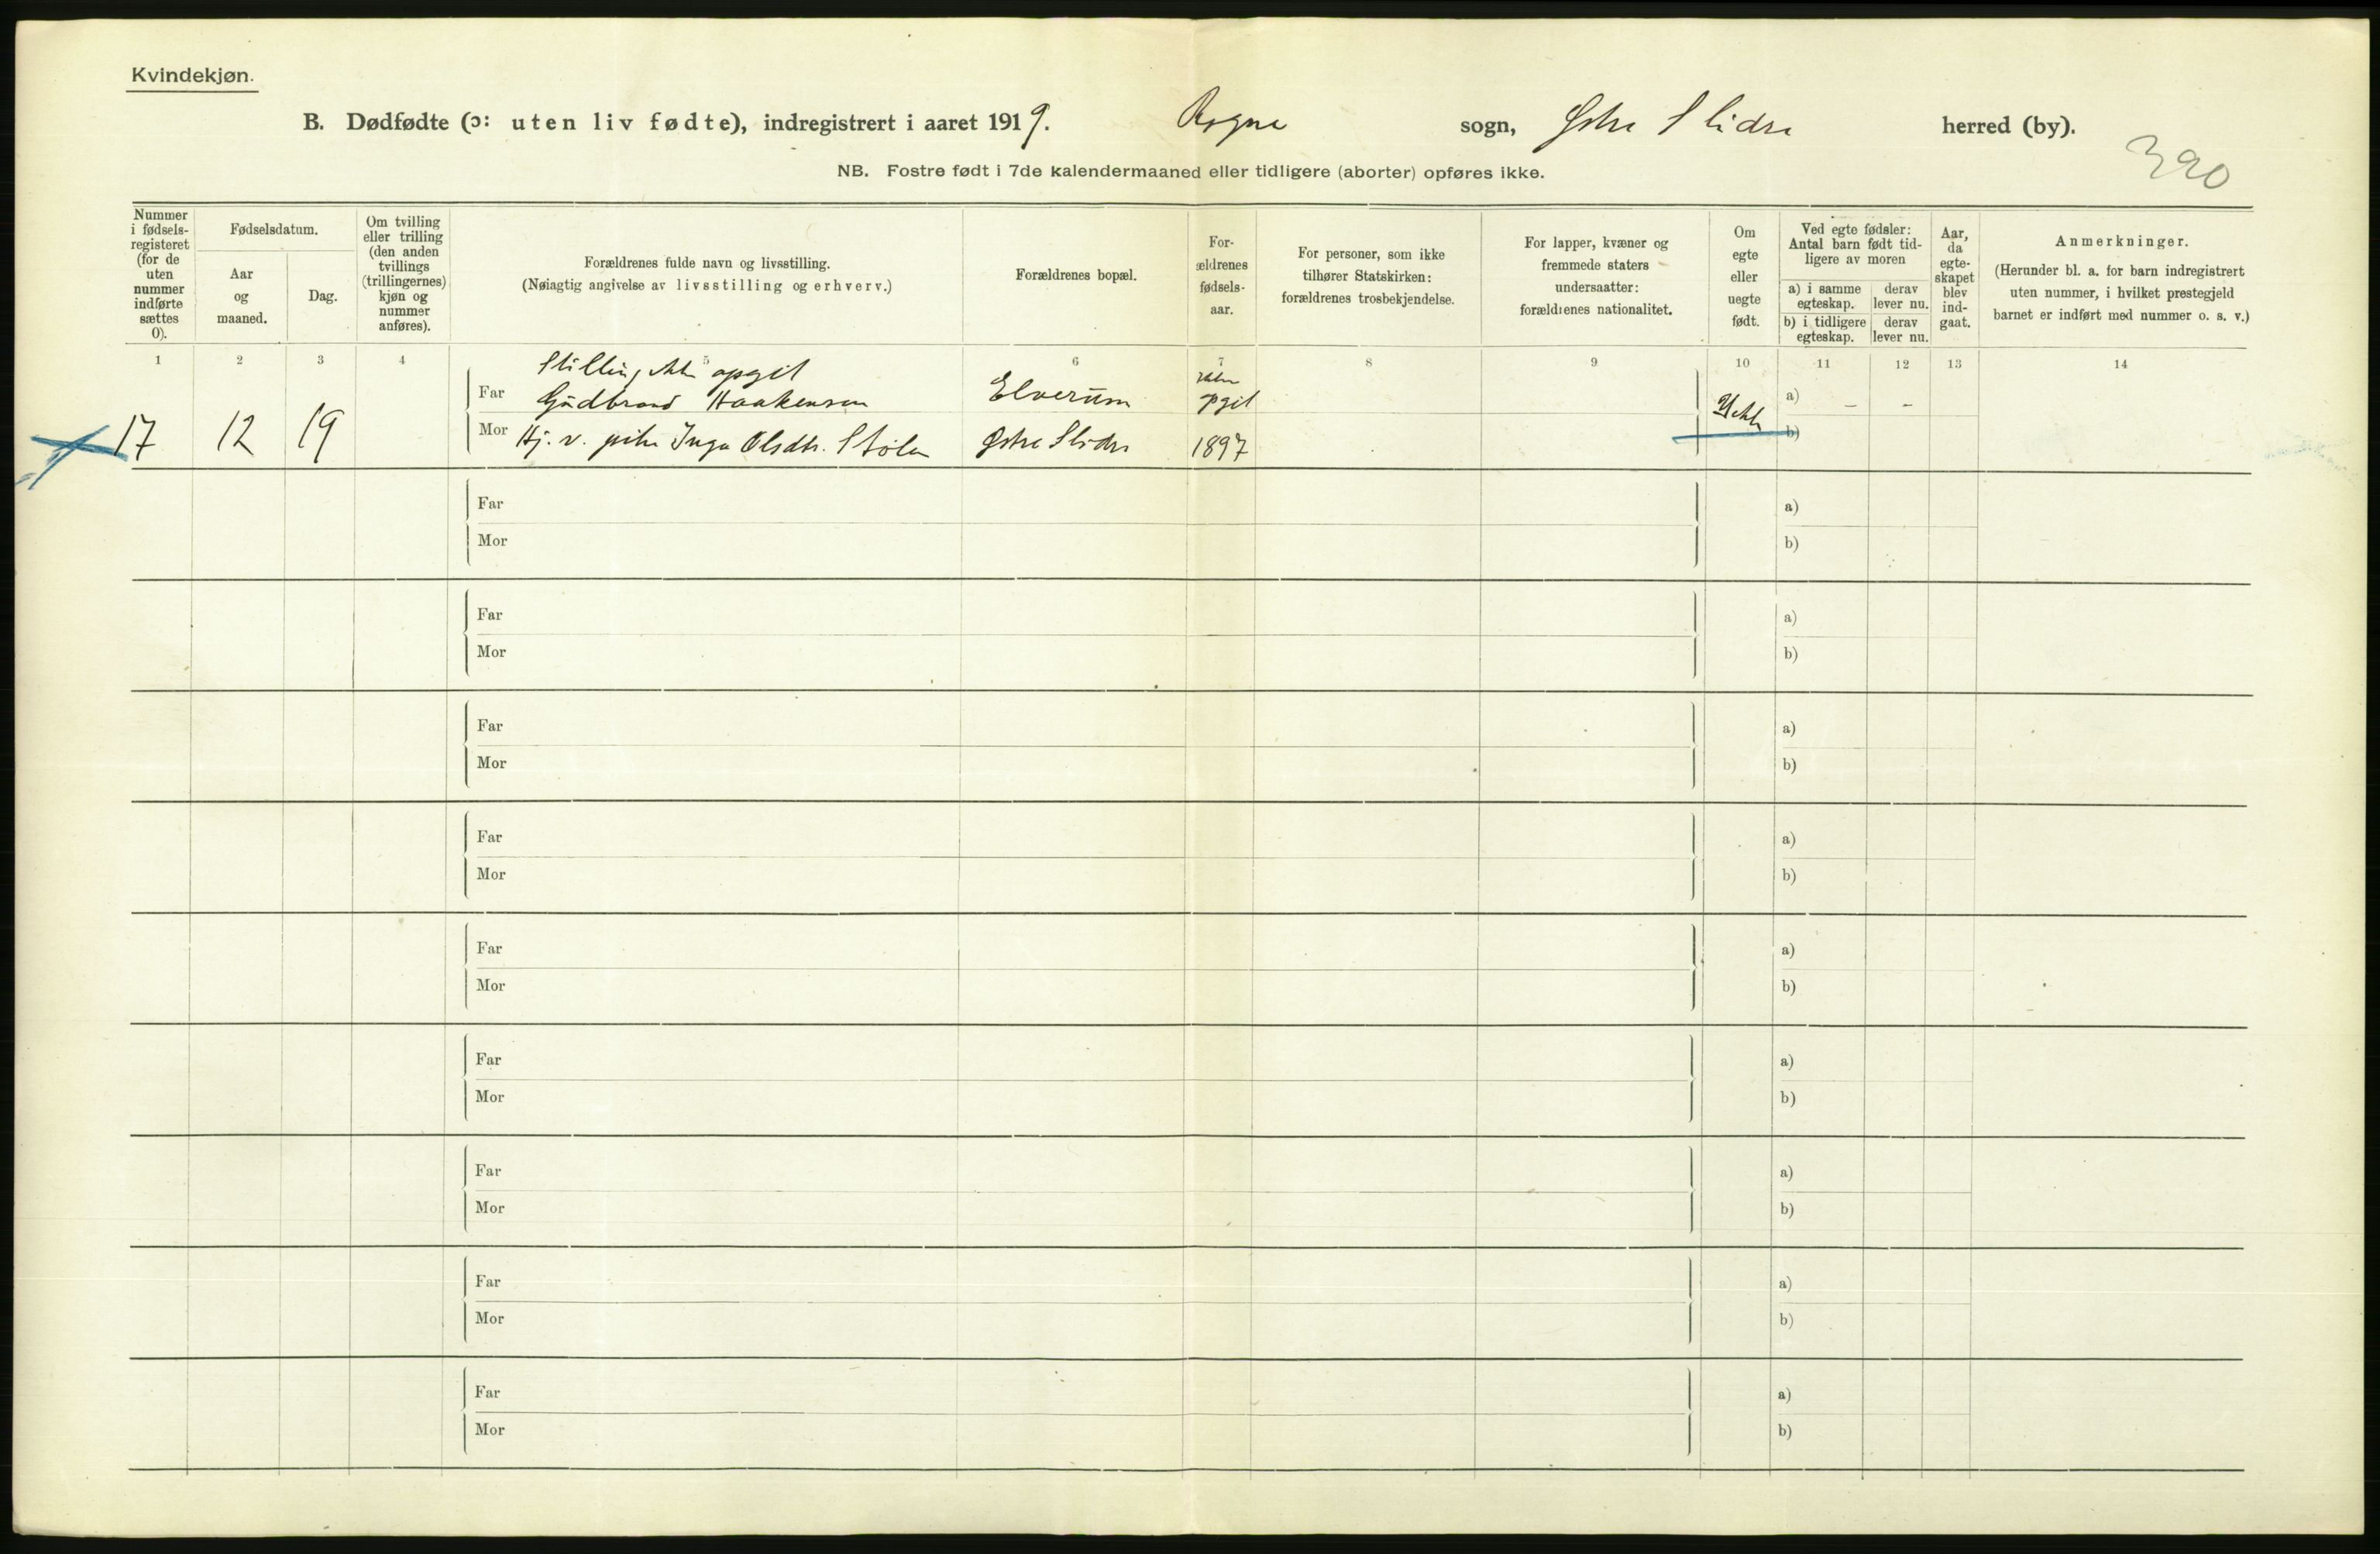 Kvindekjøn.
B. Dødfødte (ɔ: uten liv fødte), indregistrert i aaret 1919. Rogne sogn, Østre Slidre herred (by).
390
NB. Fostre født i 7de kalendermaaned eller tidligere (aborter) opføres ikke.
Nummer i fødsels-registeret (for de uten nummer indførte sættes 0).
Fødselsdatum.
Aar og maaned.
Dag.
Om tvilling eller trilling (den anden tvillings (trillingernes) kjøn og nummer anføres).
Forældrenes fulde navn og livsstilling.
(Nøiagtig angivelse av livsstilling og erhverv.)
Forældrenes bopæl.
For-ældrenes fødsels-aar.
For personer, som ikke tilhører Statskirken: forældrenes trosbekjendelse.
For lapper, kvæner og fremmede staters undersaatter: forældrenes nationalitet.
Om egte eller uegte født.
Ved egte fødsler: Antal barn født tid-ligere av moren
a) i samme egteskap. derav lever nu.
b) i tidligere egteskap. derav lever nu.
Aar, da egte-skapet blev ind-gaat.
Anmerkninger.
(Herunder bl. a. for barn indregistrert uten nummer, i hvilket prestegjeld barnet er indført med nummer o. s. v.)
1 2 3 4 5 6 7 8 9 10 11 12 13 14
Stilling ikke opgit ikke
Far Gudbrand Haakensen Elverum opgit a) – –
17 12 19 Mor Hj. v. pike Inga Olsdtr. Stølen Østre Slidre 1897 b)
Far a)
Mor b)
Far a)
Mor b)
Far a)
Mor b)
Far a)
Mor b)
Far a)
Mor b)
Far a)
Mor b)
Far a)
Mor b)
Far a)
Mor b)
Far a)
Mor b)